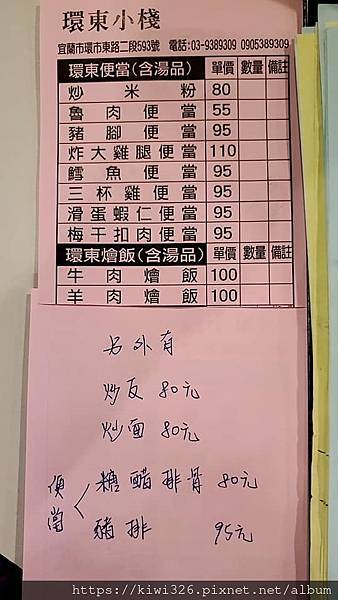 環東小棧
宜蘭市環市東路二段593號 電話:03-9389309 0905389309
環東便當(含湯品) 單價 數量 備註
炒米粉 80
魯肉便當 55
豬腳便當 95
炸大雞腿便當 110
鱈魚便當 95
三杯雞便當 95
滑蛋蝦仁便當 95
梅干扣肉便當 95
環東燴飯(含湯品) 單價 數量 備註
牛肉燴飯 100
羊肉燴飯 100
另外有
炒反 80元
炒面 80元
便當 糖醋排骨 80元
豬排 95元
https://kiwi326.pixnet.net/album